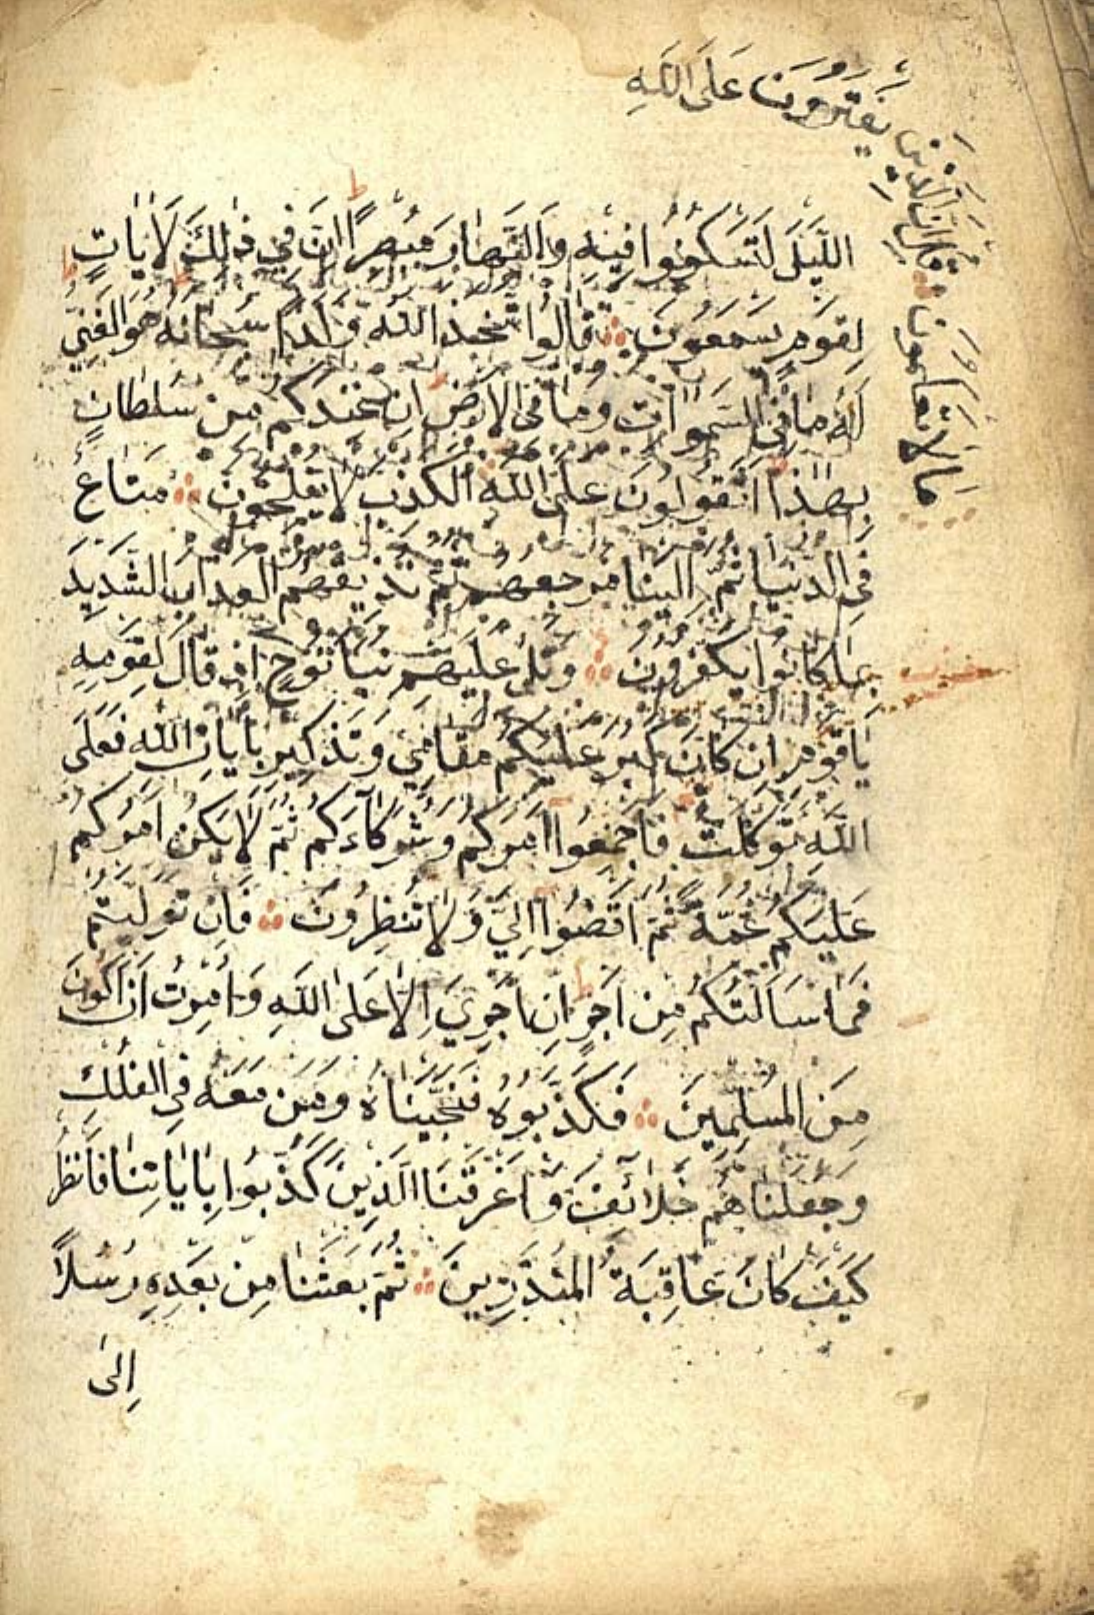 الليل لتسكنوا فيه والنهار مبصرا ان في ذلك لايات
لقوم يسمعون قالوا اتخذ الله ولدا سبحانه هو الغني
له ما في السموات وما في الارض ان عندكم من سلطان
بهذا اتقولون على الله الكذب لا يفلحون متاع
في الدنيا ثم الينا مرجعهم ثم نذيقهم العذاب الشديد
بما كانوا يكفرون واتل عليهم نبأ نوح اذ قال لقومه
ياقوم ان كان كبر عليكم مقامي وتذكيري بايات الله فعلى
الله توكلت فاجمعوا امركم وشركاءكم ثم لا يكن امركم
عليكم غمة ثم اقضوا الي ولا تنظرون فان توليتم
فما سالتكم من اجر ان اجري الا على الله وامرت ان اكون
من المسلمين فكذبوه فنجيناه ومن معه في الفلك
وجعلناهم خلائف واغرقنا الذين كذبوا باياتنا فانظر
كيف كان عاقبة المنذرين ثم بعثنا من بعده رسلا
الى
ما لا تعلمون قل ان الذين يفترون على الله